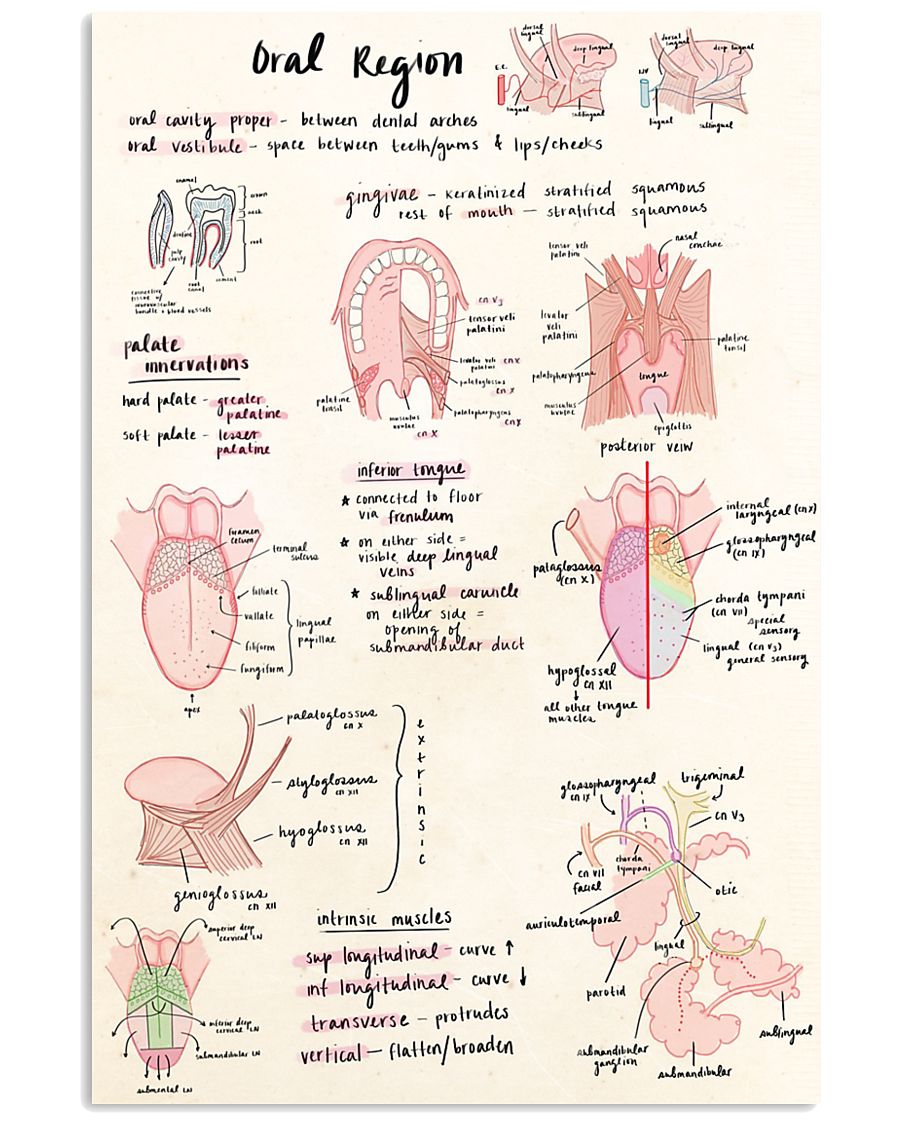 Oral Region
dorsal
lingual
deep lingual
E.C.
lingual
sublingual
dorsal
lingual
deep lingual
IJV
lingual
sublingual
oral cavity proper - between dental arches
oral vestibule - space between teeth/gums & lips/cheeks
enamel
crown
neck
dentine
root
pulp
cavity
root
canal
cement
connective
tissue w/
neurovascular
bundle + blood vessels
gingivae - keratinized stratified squamous
rest of mouth - stratified squamous
cn V3
tensor veli
palatini
levator veli
palatini
cn X
palatoglossus
cn X
palatopharyngeus
cn X
palatine
tonsil
musculus
uvulae
cn X
tensor veli
palatini
nasal
conchae
levator
veli
palatini
palatine
tonsil
palatopharyngeus
tongue
musculus
uvulae
epiglottis
posterior veiw
palate
innervations
hard palate - greater
palatine
soft palate - lesser
palatine
foramen
cecum
terminal
sulcus
foliate
vallate
filiform
fungiform
lingual
papillae
apex
inferior tongue
★ connected to floor
via frenulum
★ on either side =
visible deep lingual
veins
★ sublingual caruncle
on either side =
opening of
submandibular duct
internal
laryngeal (cn X)
glossopharyngeal
(cn IX)
palaglossus
(cn X)
chorda tympani
(cn VII)
special
sensory
lingual (cn V3)
general sensory
hypoglossal
cn XII
all other tongue
muscles
palatoglossus
cn X
styloglossus
cn XII
hyoglossus
cn XII
genioglossus
cn XII
extrinsic
superior deep
cervical LN
inferior deep
cervical LN
submandibular LN
submental LN
intrinsic muscles
sup longitudinal - curve ↑
inf longitudinal - curve ↓
transverse - protrudes
vertical - flatten/broaden
glossopharyngeal
cn IX
trigeminal
cn V3
chorda
tympani
cn VII
facial
otic
auriculotemporal
lingual
parotid
sublingual
submandibular
ganglion
submandibular